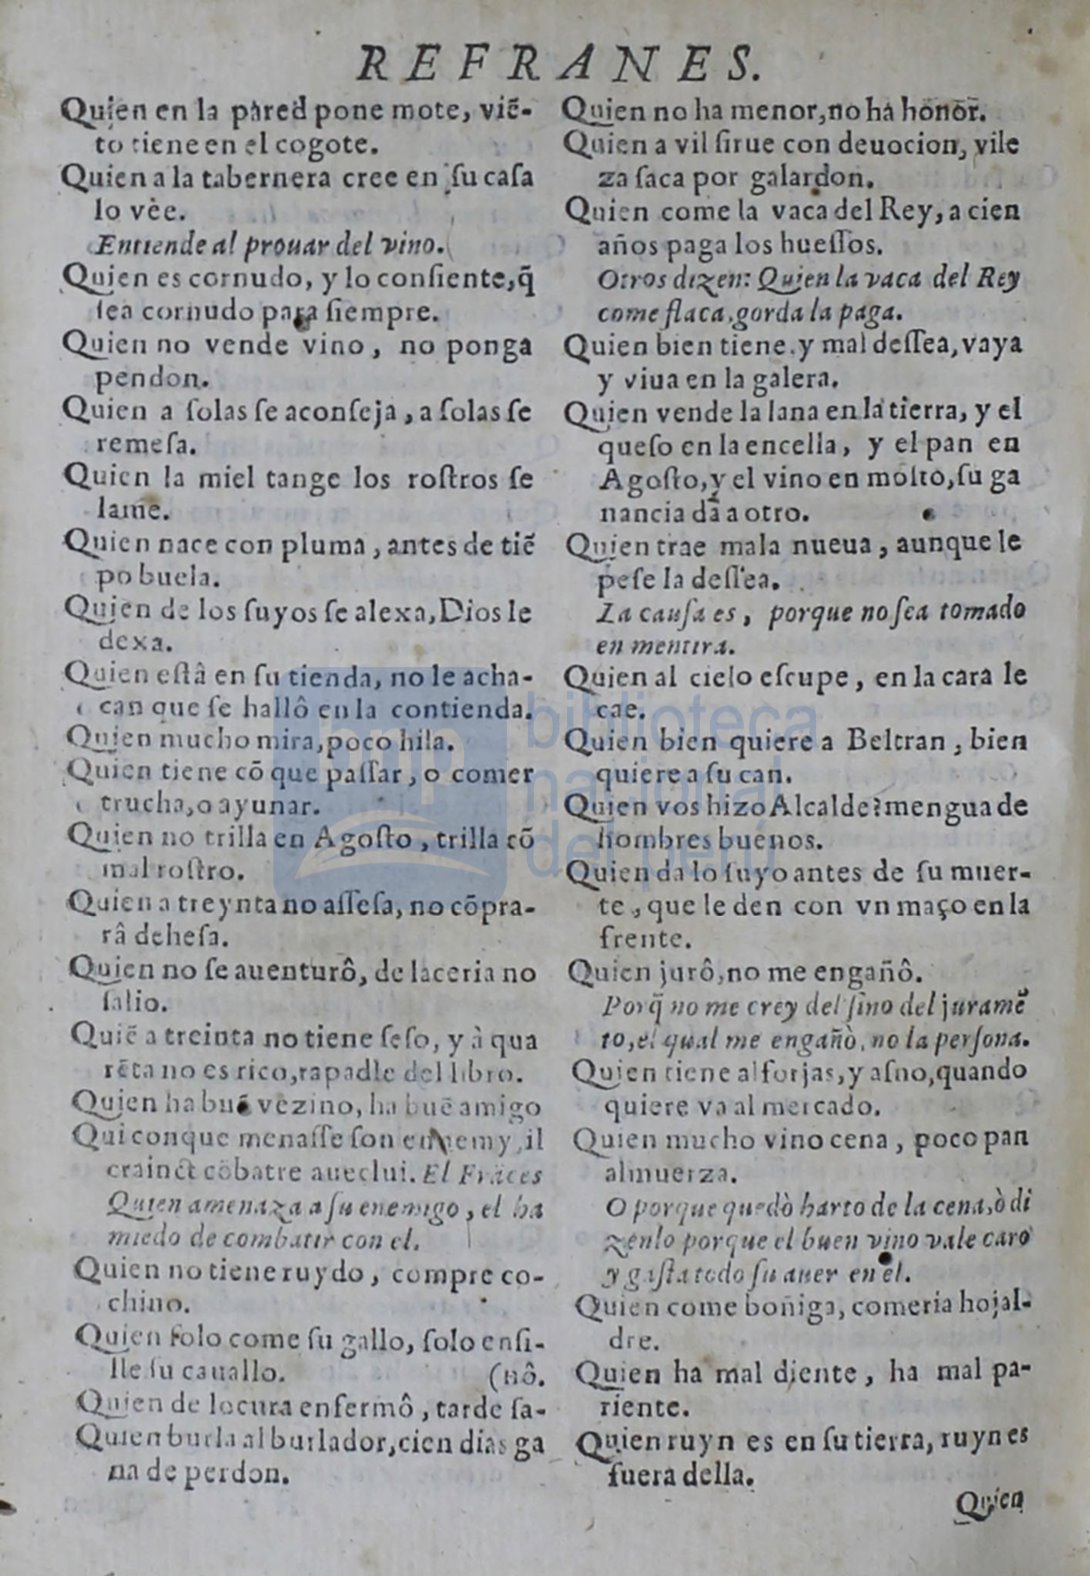 REFRANES.
Quien en la pared pone mote, viẽ-
to tiene en el cogote.
Quien a la tabernera cree en ſu caſa
lo vèe.
Entiende al prouar del vino.
Quien es cornudo, y lo conſiente, q̃
ſea cornudo para ſiempre.
Quien no vende vino, no ponga
pendon.
Quien a ſolas ſe aconſeja, a ſolas ſe
remeſa.
Quien la miel tange los roſtros ſe
lame.
Quien nace con pluma, antes de tiẽ
po buela.
Quien de los ſuyos ſe alexa, Dios le
dexa.
Quien eſtâ en ſu tienda, no le acha-
can que ſe hallô en la contienda.
Quien mucho mira, poco hila.
Quien tiene cõ que paſſar, o comer
trucha, o ayunar.
Quien no trilla en Agoſto, trilla cõ
mal roſtro.
Quien a treynta no aſſeſa, no cõpra-
râ deheſa.
Quien no ſe auenturô, de laceria no
ſalio.
Quiẽ a treinta no tiene ſeſo, y à qua
rẽta no es rico, rapadle del libro.
Quien ha buẽ vezino, ha buẽ amigo
Quiconque menaſſe ſon ennemy, il
crainct cõbatre aueclui. El Frãces
Quien amenaza a ſu enemigo, el ha
miedo de combatir con el.
Quien no tiene ruydo, compre co-
chino.
Quien ſolo come ſu gallo, ſolo enſi-
lle ſu cauallo. (nô.
Quien de locura enfermô, tarde ſa-
Quien burla al burlador, cien dias ga
na de perdon.
Quien no ha menor, no ha honor.
Quien a vil ſirue con deuocion, vile
za ſaca por galardon.
Quien come la vaca del Rey, a cien
años paga los hueſſos.
Otros dizen: Quien la vaca del Rey
come flaca, gorda la paga.
Quien bien tiene. y mal deſſea, vaya
y viua en la galera.
Quien vende la lana en la tierra, y el
queſo en la encella, y el pan en
Agoſto, y el vino en moſto, ſu ga
nancia dâ a otro.
Quien trae mala nueua, aunque le
peſe la deſſea.
La cauſa es, porque no ſea tomado
en mentira.
Quien al cielo eſcupe, en la cara le
cae.
Quien bien quiere a Beltran, bien
quiere a ſu can.
Quien vos hizo Alcalde? mengua de
hombres buenos.
Quien da lo ſuyo antes de ſu muer-
te, que le den con vn maço en la
frente.
Quien jurô, no me engañô.
Porq̃ no me crey del ſino del juramẽ
to, el qual me engañò, no la perſona.
Quien tiene alforjas, y aſno, quando
quiere va al mercado.
Quien mucho vino cena, poco pan
almuerza.
O porque quedò harto de la cena, ò di
zenlo porque el buen vino vale caro
y gaſta todo ſu auer en el.
Quien come boñiga, comeria hojal-
dre.
Quien ha mal diente, ha mal pa-
riente.
Quien ruyn es en ſu tierra, ruyn es
fuera della.
Quien
bnp
biblioteca
nacional
del perú